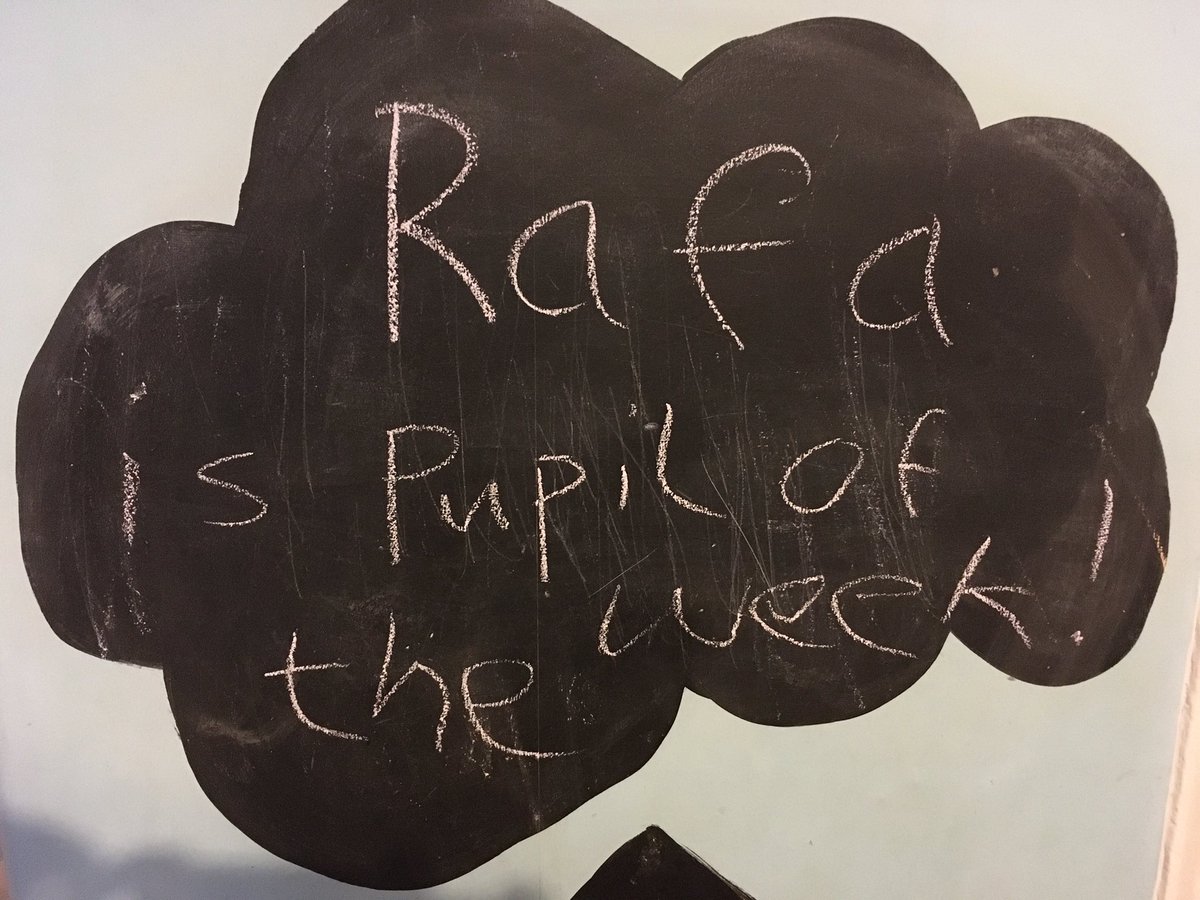 Rafa
is Pupil of
the week!